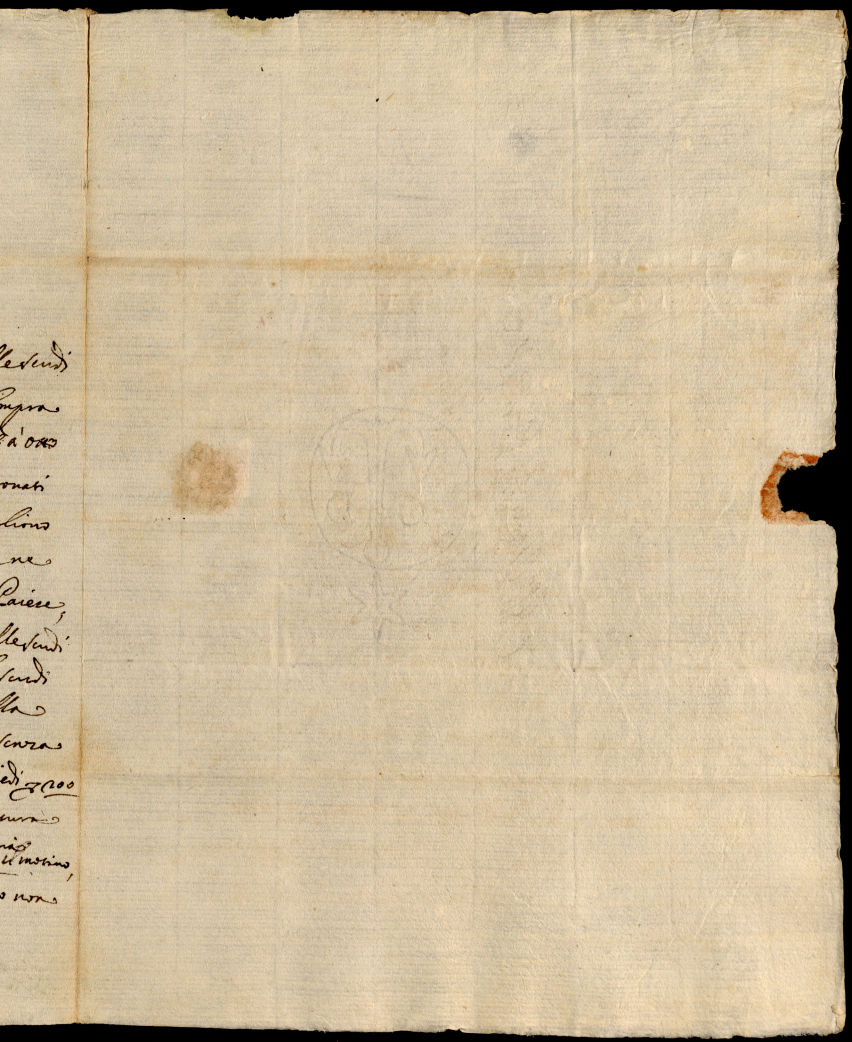 lle scudi
ompra
à oro
onati
lions
ne
Paiese,
lle scudi
scudi
lla
senza
iedi 200
cura
il motivo,
o non